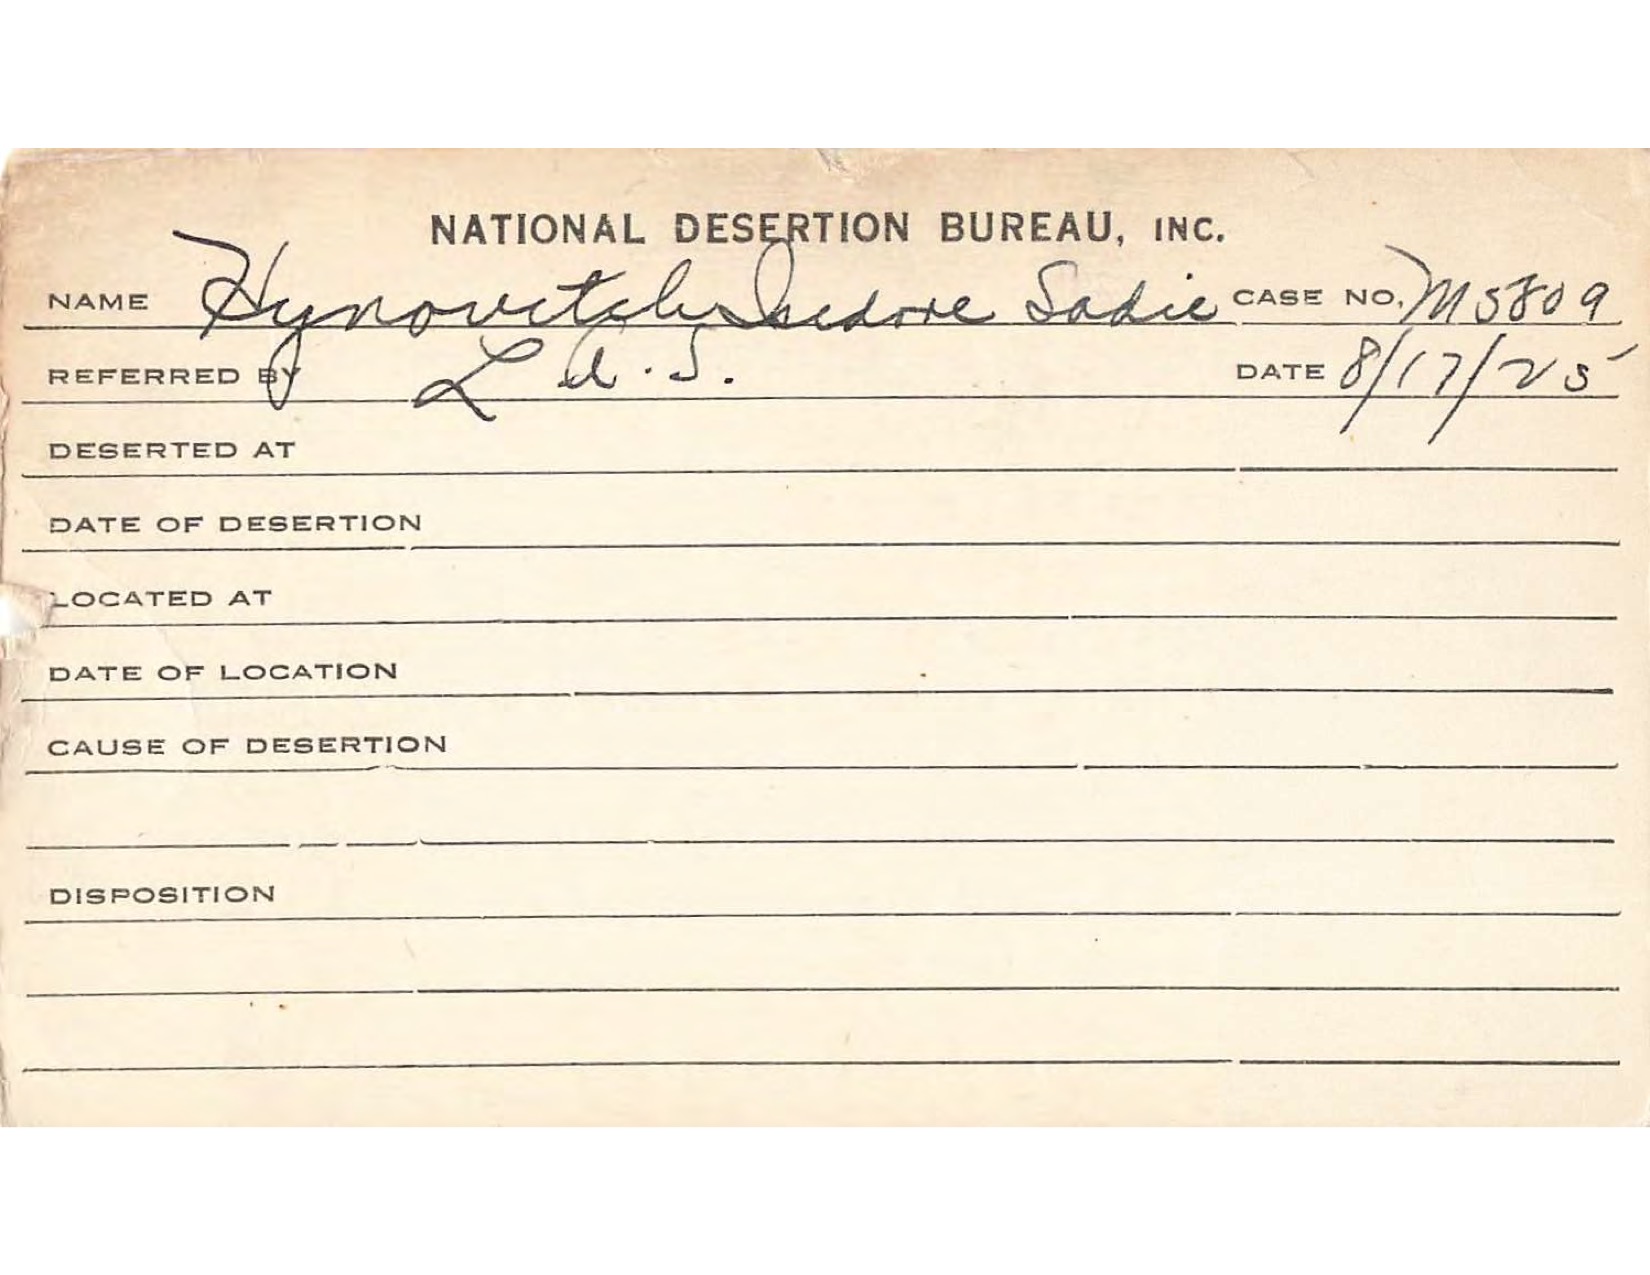 NATIONAL DESERTION BUREAU, INC.
NAME Hynovitch Isedore Sadie CASE NO. M5809
REFERRED BY L.A.S. DATE 8/17/25
DESERTED AT
DATE OF DESERTION
LOCATED AT
DATE OF LOCATION
CAUSE OF DESERTION
DISPOSITION